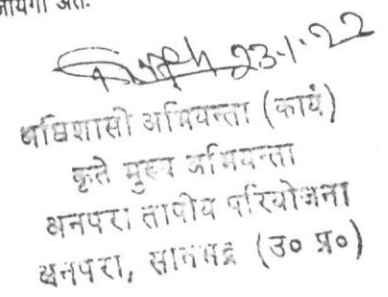 23-1-22
अधिशासी अभियन्ता (कार्य)
कृते मुख्य अभियन्ता
अनपरा तापीय परियोजना
अनपरा, सोनभद्र (उ० प्र०)